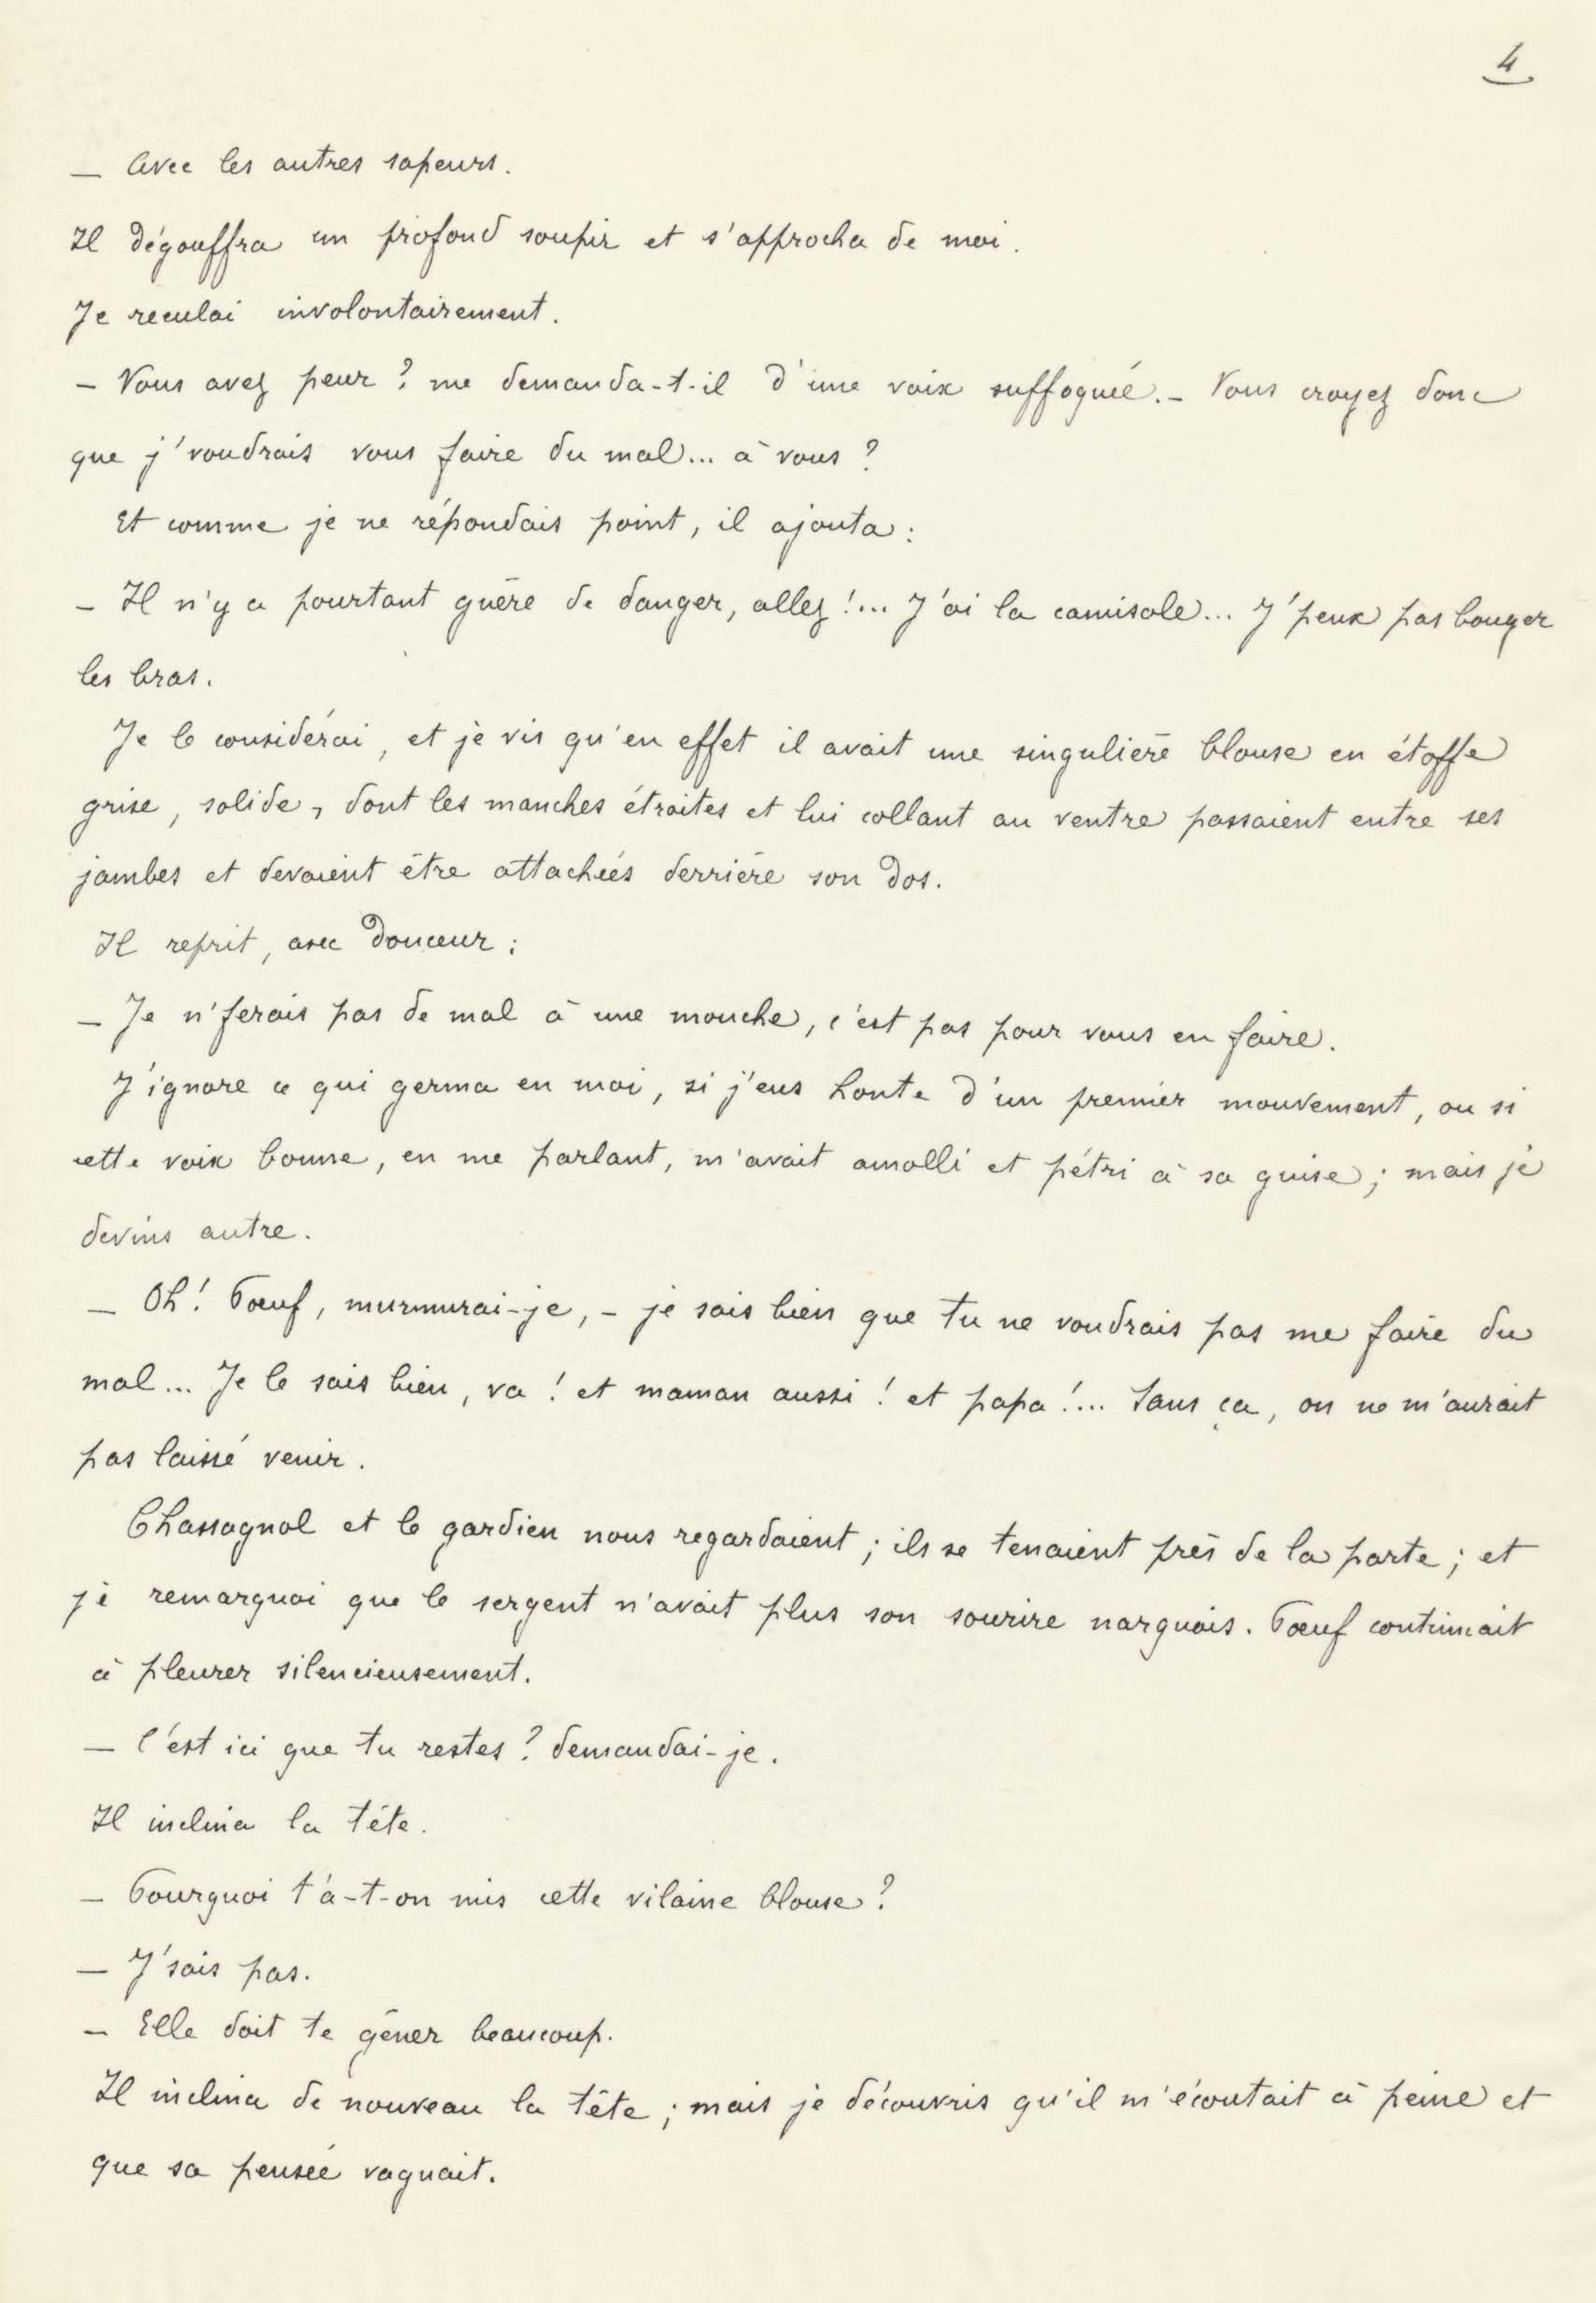 4
— Avec les autres sapeurs.
Il dégouffra un profond soupir et s'approcha de moi.
Je reculai involontairement.
— Vous avez peur ? me demanda-t-il d'une voix suffoquée. — Vous croyez donc
que j'voudrais vous faire du mal... à vous ?
Et comme je ne répondais point, il ajouta :
— Il n'y a pourtant guère de danger, allez !... J'ai la camisole... J'peux pas bouger
les bras.
Je le considérai, et je vis qu'en effet il avait une singulière blouse en étoffe
grise, solide, dont les manches étroites et lui collant au ventre passaient entre ses
jambes et devaient être attachées derrière son dos.
Il reprit, avec douceur :
— Je n'ferais pas de mal à une mouche, c'est pas pour vous en faire.
J'ignore ce qui germa en moi, si j'eus honte d'un premier mouvement, ou si
cette voix bonne, en me parlant, m'avait amolli et pétri à sa guise ; mais je
devins autre.
— Oh ! Pœuf, murmurai-je, — je sais bien que tu ne voudrais pas me faire du
mal... Je le sais bien, va ! et maman aussi ! et papa !... Sans ça, on ne m'aurait
pas laissé venir.
Chassagnol et le gardien nous regardaient ; ils se tenaient près de la porte ; et
je remarquai que le sergent n'avait plus son sourire narquois. Pœuf continuait
à pleurer silencieusement.
— C'est ici que tu restes ? demandai-je.
Il inclina la tête.
— Pourquoi t'a-t-on mis cette vilaine blouse ?
— J'sais pas.
— Elle doit te gêner beaucoup.
Il inclina de nouveau la tête ; mais je découvris qu'il m'écoutait à peine et
que sa pensée vaguait.